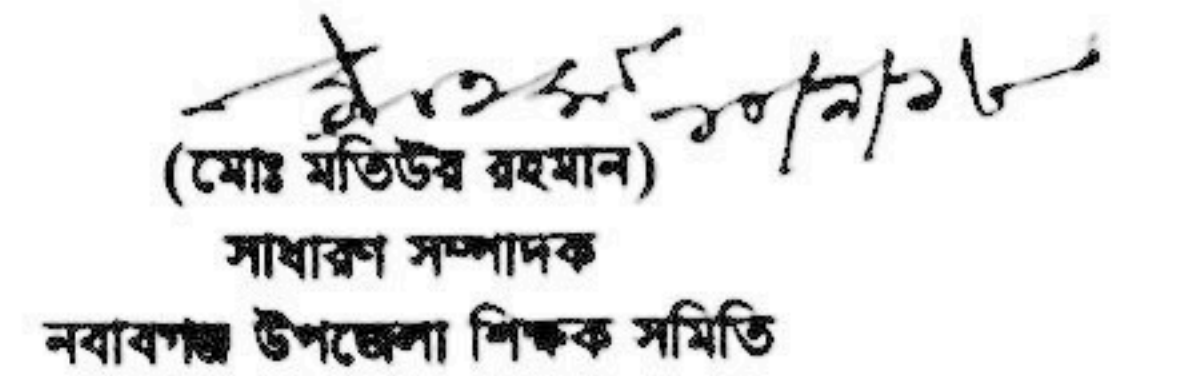 (মোঃ মতিউর রহমান)
সাধারণ সম্পাদক
নবাবগঞ্জ উপজেলা শিক্ষক সমিতি